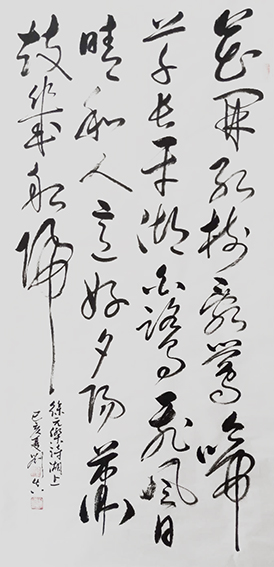 花開紅樹亂鶯啼
草長平湖白鷺飛風日
晴和人意好夕陽簫
鼓幾船歸
徐元傑詩湖上
己亥夏刘